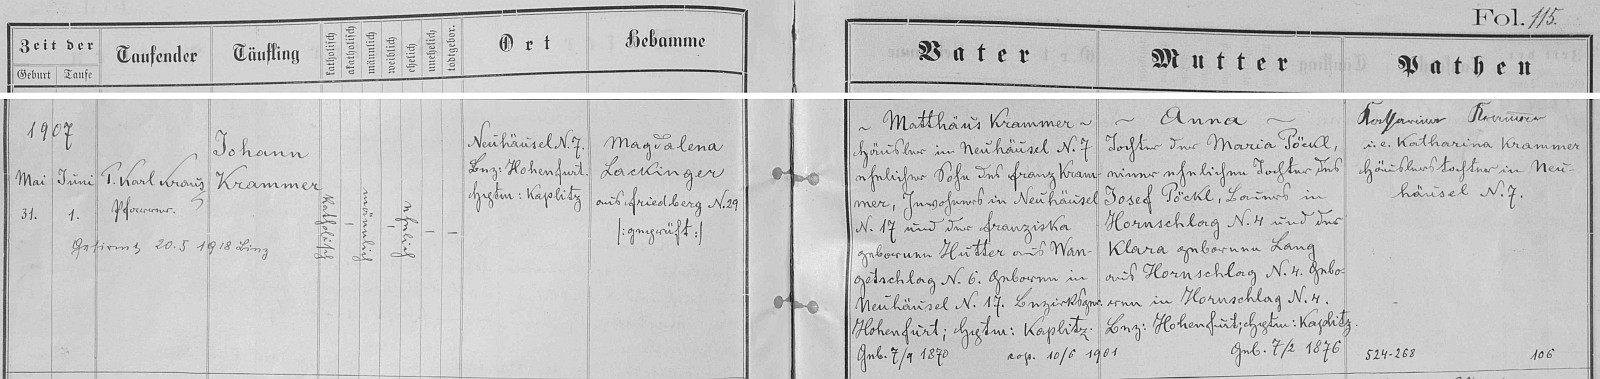 Fol. 115.
Zeit der
Geburt Taufe
Taufender
Täufling
katholisch
akatholisch
männlich
weiblich
ehelich
unehelich
todtgebor.
Ort
Hebamme
Vater
Mutter
Pathen
1907
Mai
31.
Juni
1.
P. Karl Kraus
Pfarrer.
Johann
Krammer
Gefirmt 20.5 1918 Linz
katholisch
männlich
ehelich
Neuhäusel N. 7.
Bez: Hohenfurt.
Hptm: Kaplitz
Magdalena
Lackinger
aus Friedberg N. 29
/: geprüft :/
~ Matthäus Krammer ~
Häusler in Neuhäusel N. 7
ehelicher Sohn des Franz Kram-
mer, Inwohners in Neuhäusel
N. 17 und der Franziska
geborenen Hutter aus Wan-
getschlag N. 6. Geboren in
Neuhäusel N. 17. Bezirksger.
Hohenfurt; Hptm: Kaplitz.
Geb. 7/9 1870 cop. 10/6 1901
~ Anna ~
Tochter der Maria Pöckl,
einer ehelichen Tochter des
Josef Pöckl, Bauers in
Hornschlag N. 4 und der
Klara geborenen Lang
aus Hornschlag N. 4. Gebo-
ren in Hornschlag N. 4.
Bez: Hohenfurt; Hptm: Kaplitz.
Geb. 7/2 1876
Katharina Krammer
i. e. Katharina Krammer
Häuslerstochter in Neu-
häusel N. 7.
524-268 106